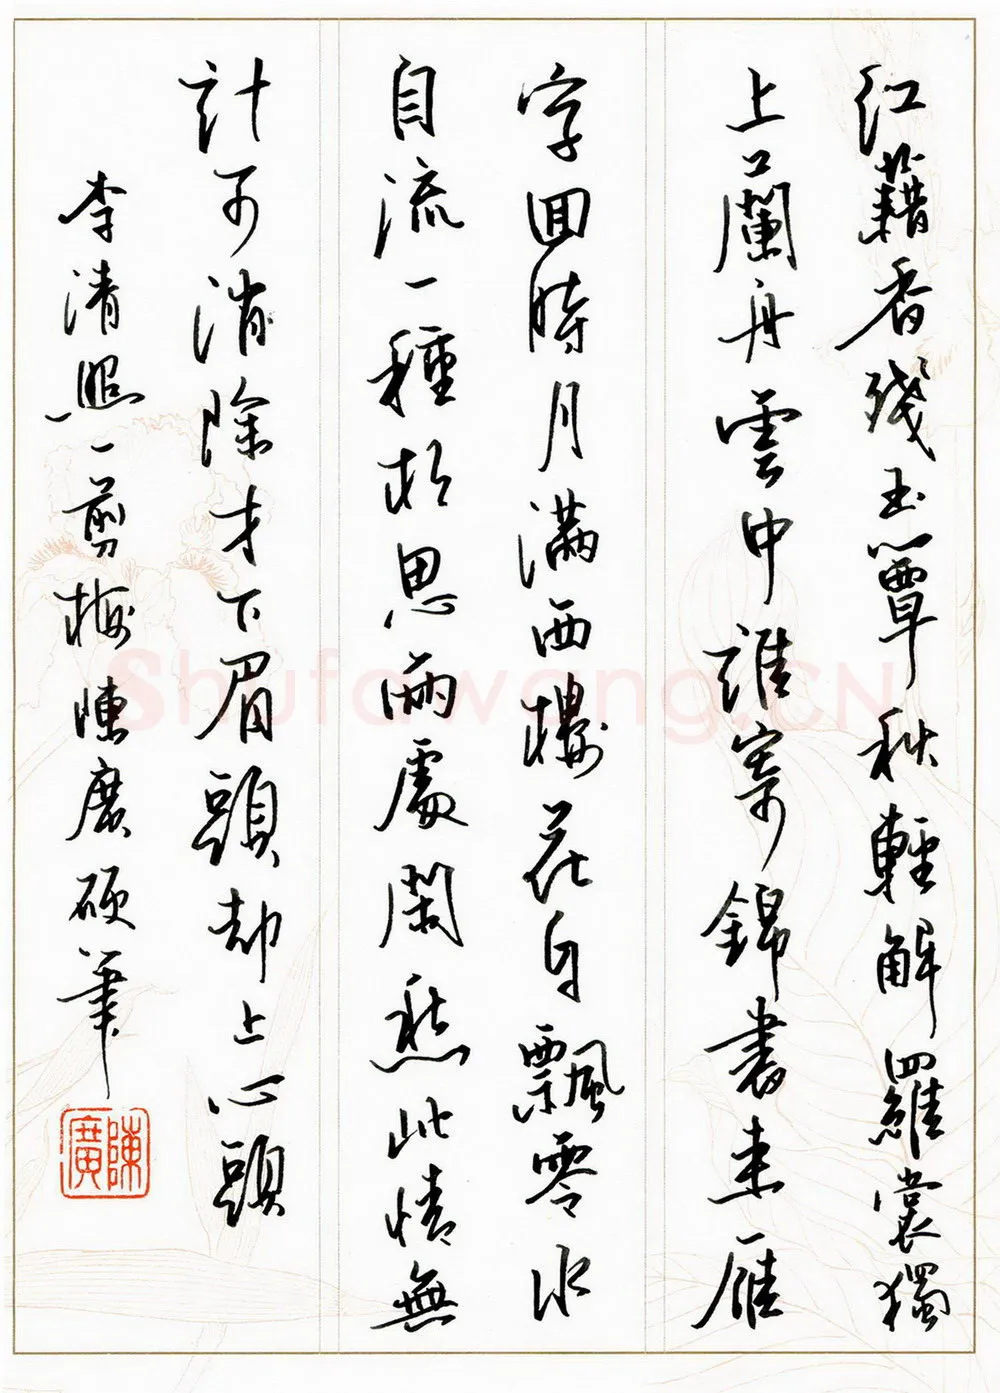 紅藕香殘玉簟秋輕解羅裳獨
上蘭舟雲中誰寄錦書来雁
字回時月滿西樓花自飄零水
自流一種相思兩處閑愁此情無
計可消除才下眉頭却上心頭
李清照一剪梅陳廣硕筆
陳廣
Shufawang.CN